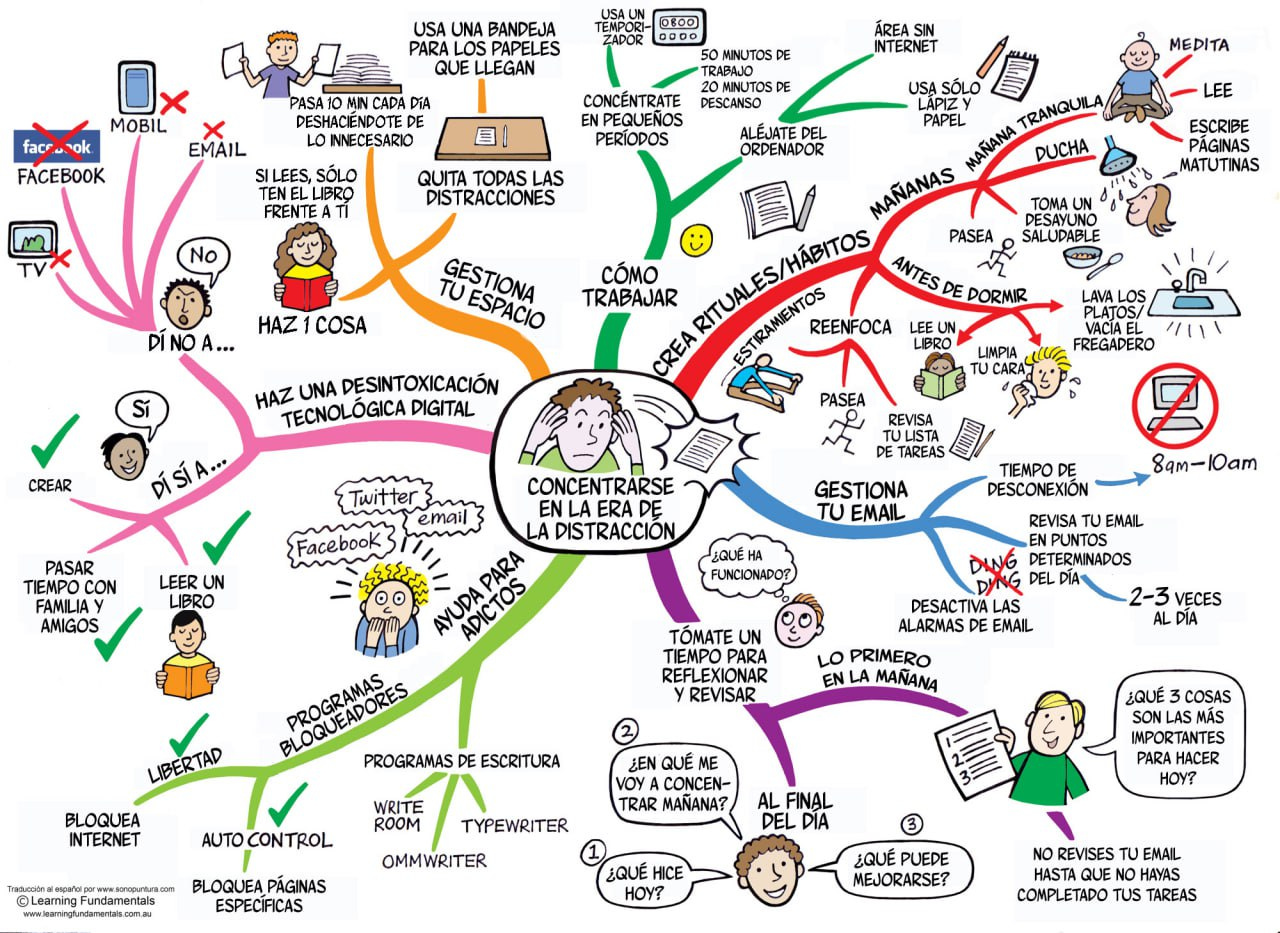 CONCENTRARSE
EN LA ERA DE
LA DISTRACCIÓN
CÓMO
TRABAJAR
CONCÉNTRATE
EN PEQUEÑOS
PERÍODOS
USA UN
TEMPORI-
ZADOR
0800
50 MINUTOS DE
TRABAJO
20 MINUTOS DE
DESCANSO
ALÉJATE DEL
ORDENADOR
ÁREA SIN
INTERNET
USA SÓLO
LÁPIZ Y
PAPEL
CREA RITUALES/HÁBITOS
MAÑANAS
MAÑANA TRANQUILA
MEDITA
LEE
ESCRIBE
PÁGINAS
MATUTINAS
DUCHA
TOMA UN
DESAYUNO
SALUDABLE
PASEA
ANTES DE DORMIR
LAVA LOS
PLATOS/
VACÍA EL
FREGADERO
LEE UN
LIBRO
LIMPIA
TU CARA
REENFOCA
ESTIRAMIENTOS
PASEA
REVISA
TU LISTA
DE TAREAS
GESTIONA
TU EMAIL
TIEMPO DE
DESCONEXIÓN
8am-10am
REVISA TU EMAIL
EN PUNTOS
DETERMINADOS
DEL DÍA
2-3 VECES
AL DÍA
DING
DING
DESACTIVA LAS
ALARMAS DE EMAIL
¿QUÉ HA
FUNCIONADO?
TÓMATE UN
TIEMPO PARA
REFLEXIONAR
Y REVISAR
LO PRIMERO
EN LA MAÑANA
1
2
3
¿QUÉ 3 COSAS
SON LAS MÁS
IMPORTANTES
PARA HACER
HOY?
NO REVISES TU EMAIL
HASTA QUE NO HAYAS
COMPLETADO TUS TAREAS
AL FINAL
DEL DÍA
1
¿QUÉ HICE
HOY?
2
¿EN QUÉ ME
VOY A CONCEN-
TRAR MAÑANA?
3
¿QUÉ PUEDE
MEJORARSE?
AYUDA PARA
ADICTOS
Twitter
email
Facebook
PROGRAMAS
BLOQUEADORES
LIBERTAD
BLOQUEA
INTERNET
AUTO CONTROL
BLOQUEA PÁGINAS
ESPECÍFICAS
PROGRAMAS DE ESCRITURA
WRITE
ROOM
OMMWRITER
TYPEWRITER
HAZ UNA DESINTOXICACIÓN
TECNOLÓGICA DIGITAL
DÍ NO A...
NO
TV
facebook
FACEBOOK
MOBIL
EMAIL
DÍ SÍ A...
Sí
CREAR
PASAR
TIEMPO CON
FAMILIA Y
AMIGOS
LEER UN
LIBRO
GESTIONA
TU ESPACIO
HAZ 1 COSA
SI LEES, SÓLO
TEN EL LIBRO
FRENTE A TÍ
PASA 10 MIN CADA DÍA
DESHACIÉNDOTE DE
LO INNECESARIO
QUITA TODAS LAS
DISTRACCIONES
USA UNA BANDEJA
PARA LOS PAPELES
QUE LLEGAN
Traducción al español por www.sonopuntura.com
© Learning Fundamentals
www.learningfundamentals.com.au